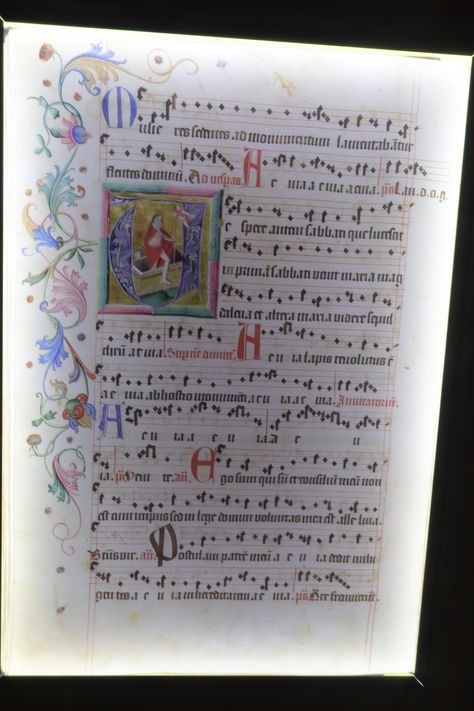 Mulieres sedentes ad monumentum lamentabantur
flentes dominum. Ad vesperas. A e u ia a e u ia a e u ia. ps Lau. d. o. g.
Vespere autem sabbati que lucescit
in prima sabbati venit maria mag
dalena et altera maria videre sepul
chrum a e u ia. A e u ia lapis revolutus e
a e u ia ab hostio monumenti a e u ia a e u ia. Invitatorium.
A e u ia a e u ia e u
ia. ps Venite. an. Ego sum qui sum et consilium meum non
est cum impiis sed in lege domini voluntas mea est alleluia
Beatus vir. an. Postulavi patrem meum a e u ia dedit mihi
gentes a e u ia in hereditatem a e u ia. ps Quare fremuerunt.